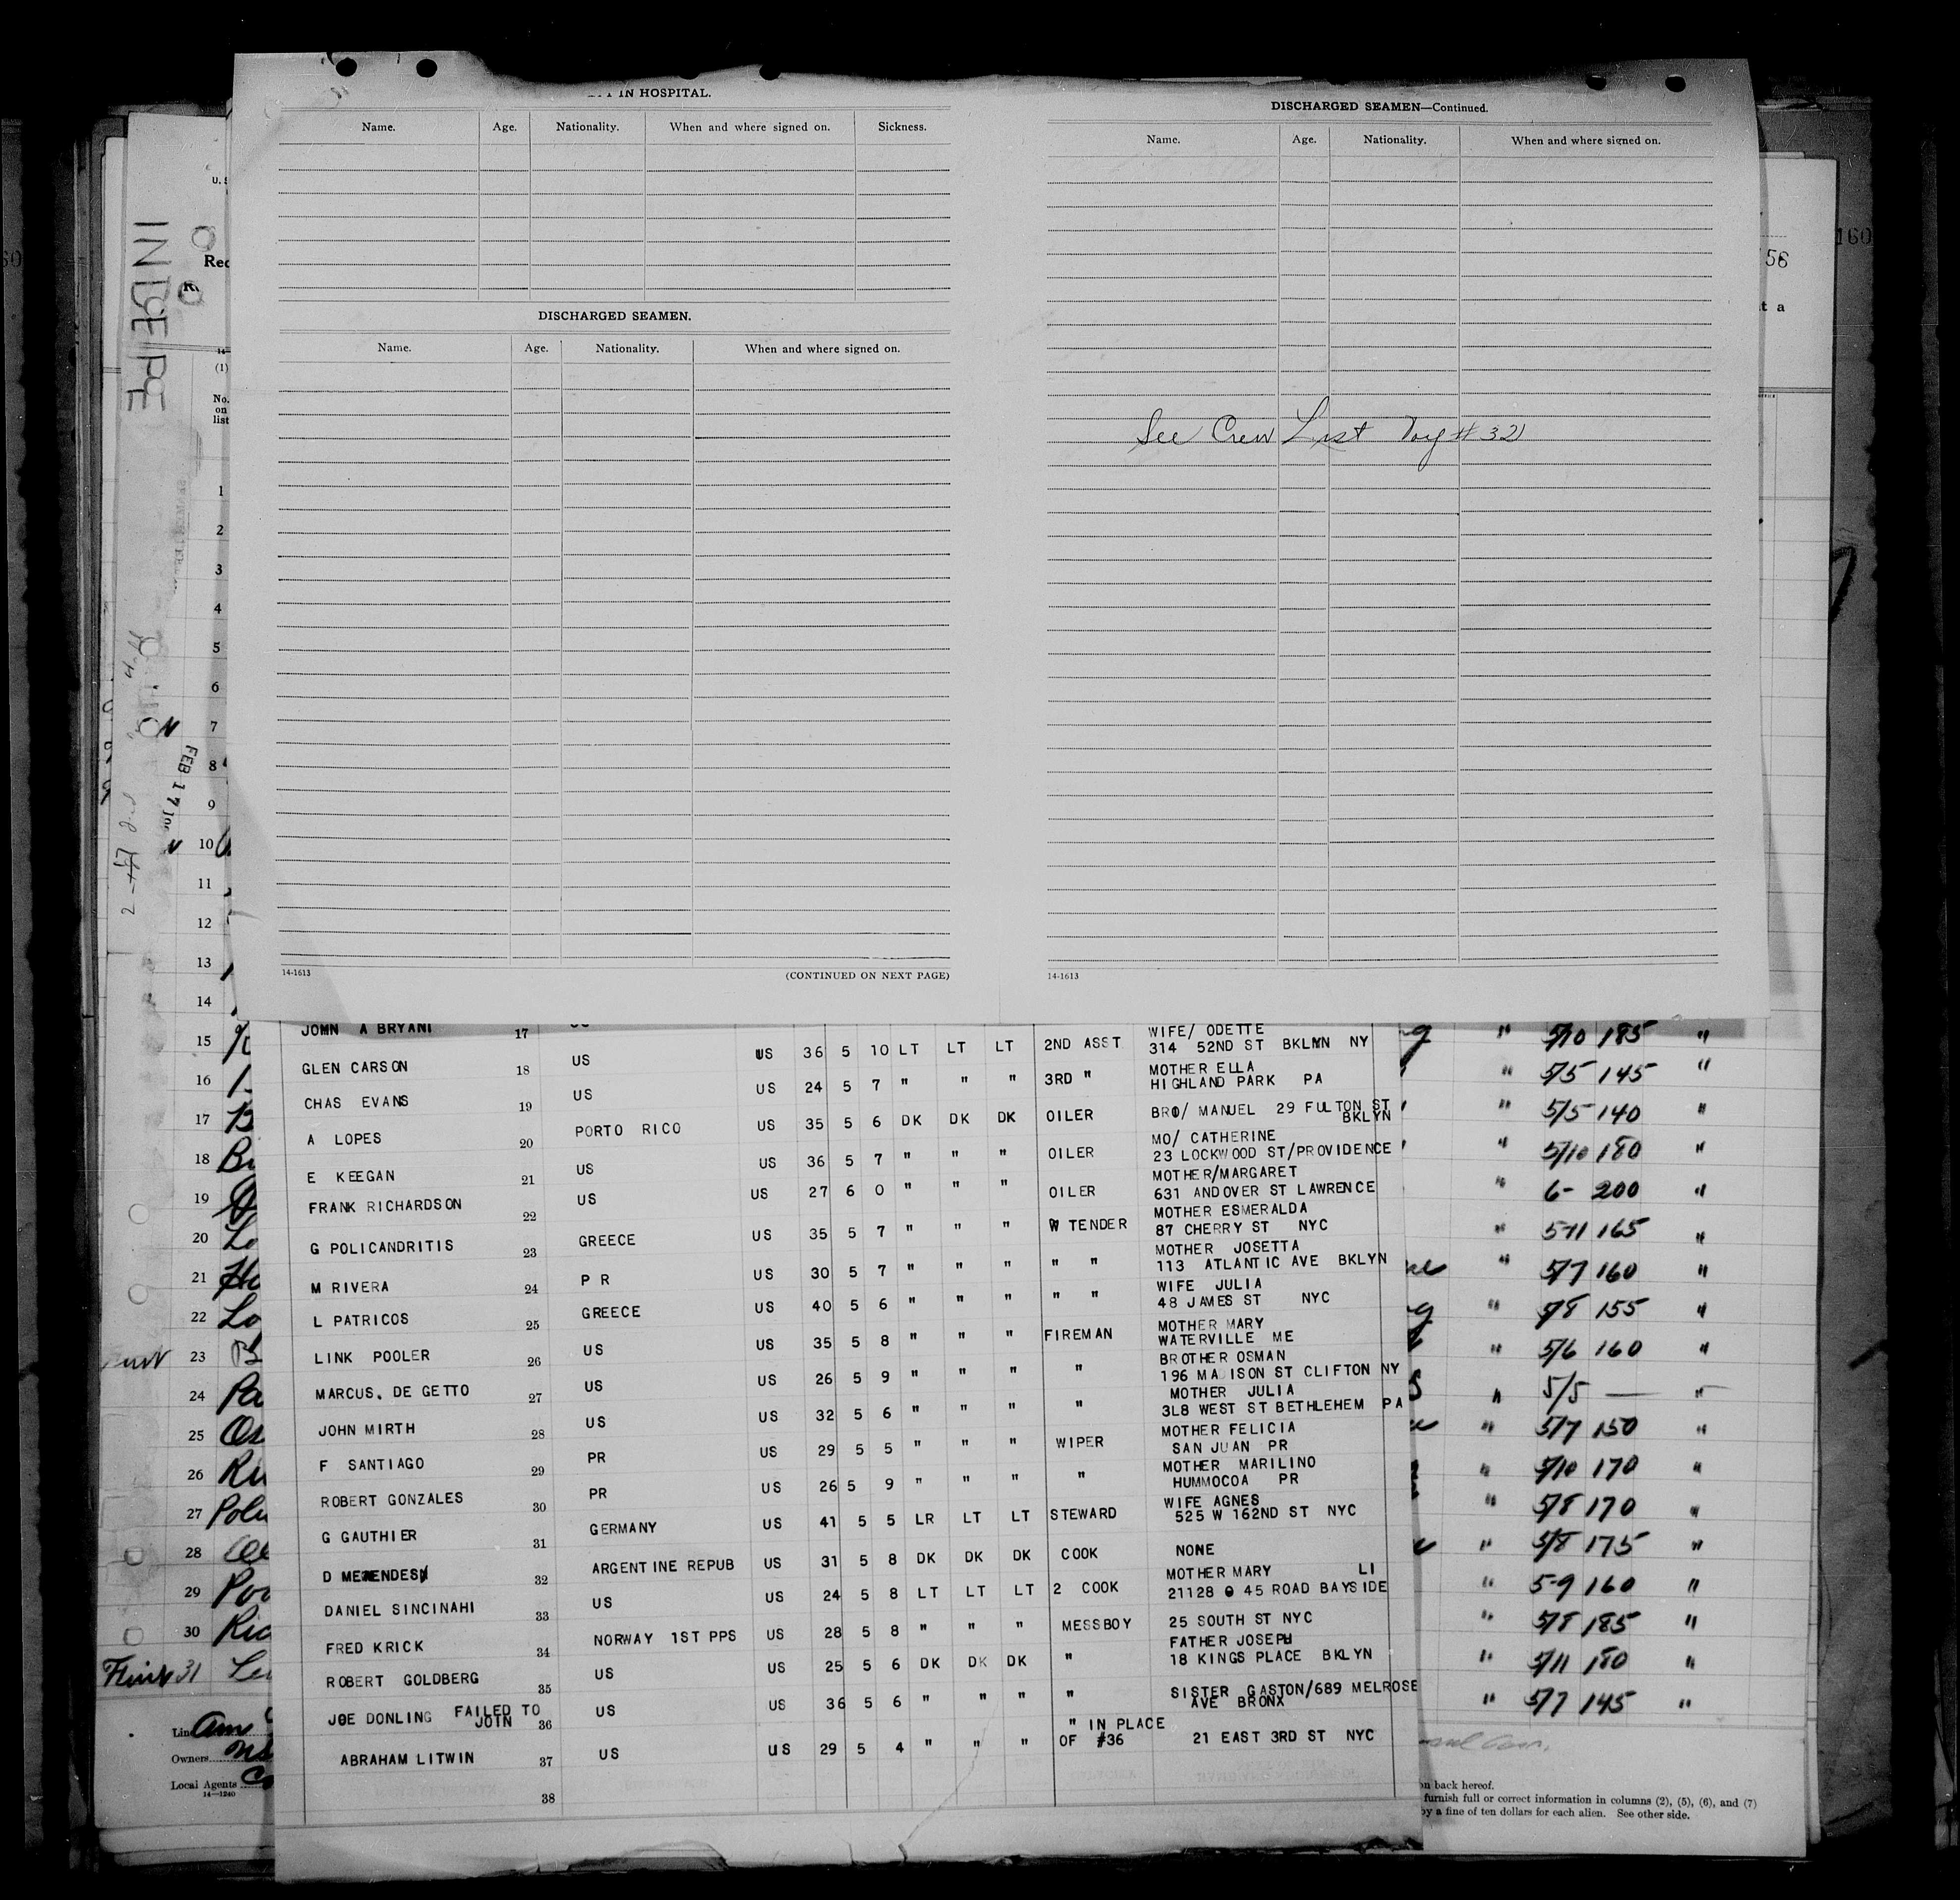 IN HOSPITAL.
Name. Age. Nationality. When and where signed on. Sickness.
DISCHARGED SEAMEN.
Name. Age. Nationality. When and where signed on.
14-1613 (CONTINUED ON NEXT PAGE)
DISCHARGED SEAMEN—Continued.
Name. Age. Nationality. When and where signed on.
See Crew List Voy # 32
14-1613
160
56
t a
(1)
No. on list
FEB 17
1
2
3
4
5
6
7
8
9
10
11
12
13
14
15
16
17
18
19
20
21
22
23
24
25
26
27
28
29
30
31
JOHN A BRYANT 17
US 36 5 10 LT LT LT 2ND ASST WIFE/ ODETTE
314 52ND ST BKLYN NY
GLEN CARSON 18 US US 24 5 7 " " " 3RD " MOTHER ELLA
HIGHLAND PARK PA
CHAS EVANS 19 US
A LOPES 20 PORTO RICO US 35 5 6 DK DK DK OILER BRO/ MANUEL 29 FULTON ST
BKLYN
E KEEGAN 21 US US 36 5 7 " " " OILER MO/ CATHERINE
23 LOCKWOOD ST/PROVIDENCE
FRANK RICHARDSON 22 US US 27 6 0 " " " OILER MOTHER/MARGARET
631 ANDOVER ST LAWRENCE
G POLICANDRITIS 23 GREECE US 35 5 7 " " " W TENDER MOTHER ESMERALDA
87 CHERRY ST NYC
M RIVERA 24 P R US 30 5 7 " " " " " MOTHER JOSETTA
113 ATLANTIC AVE BKLYN
L PATRICOS 25 GREECE US 40 5 6 " " " " " WIFE JULIA
48 JAMES ST NYC
LINK POOLER 26 US US 35 5 8 " " " FIREMAN MOTHER MARY
WATERVILLE ME
MARCUS. DE GETTO 27 US US 26 5 9 " " " " BROTHER OSMAN
196 MADISON ST CLIFTON NY
JOHN MIRTH 28 US US 32 5 6 " " " " MOTHER JULIA
3L8 WEST ST BETHLEHEM PA
F SANTIAGO 29 PR US 29 5 5 " " " WIPER MOTHER FELICIA
SAN JUAN PR
ROBERT GONZALES 30 PR US 26 5 9 " " " " MOTHER MARILINO
HUMMOCOA PR
G GAUTHIER 31 GERMANY US 41 5 5 LR LT LT STEWARD WIFE AGNES
525 W 162ND ST NYC
D MENENDES 32 ARGENTINE REPUB US 31 5 8 DK DK DK COOK NONE
DANIEL SINCINAHI 33 US US 24 5 8 LT LT LT 2 COOK MOTHER MARY LI
21128 @ 45 ROAD BAYSIDE
FRED KRICK 34 NORWAY 1ST PPS US 28 5 8 " " " MESSBOY 25 SOUTH ST NYC
ROBERT GOLDBERG 35 US US 25 5 6 DK DK DK " FATHER JOSEPH
18 KINGS PLACE BKLYN
JOE DONLING FAILED TO JOIN 36 US US 36 5 6 " " " " SISTER GASTON/689 MELROSE
AVE BRONX
ABRAHAM LITWIN 37 US US 29 5 4 " " " " IN PLACE
OF #36 21 EAST 3RD ST NYC
38
" 5/10 185 "
" 5/5 145 "
" 5/5 140 "
" 5/10 180 "
" 6- 200 "
" 5-11 165 "
" 5/7 160 "
" 5/8 155 "
" 5/6 160 "
" 5/5 — "
" 5/7 150 "
" 5/10 170 "
" 5/8 170 "
" 5/8 175 "
" 5-9 160 "
" 5/8 185 "
" 5/11 180 "
" 5/7 145 "
Line Am
Owners
Local Agents
14—1240
on back hereof.
furnish full or correct information in columns (2), (5), (6), and (7)
by a fine of ten dollars for each alien. See other side.